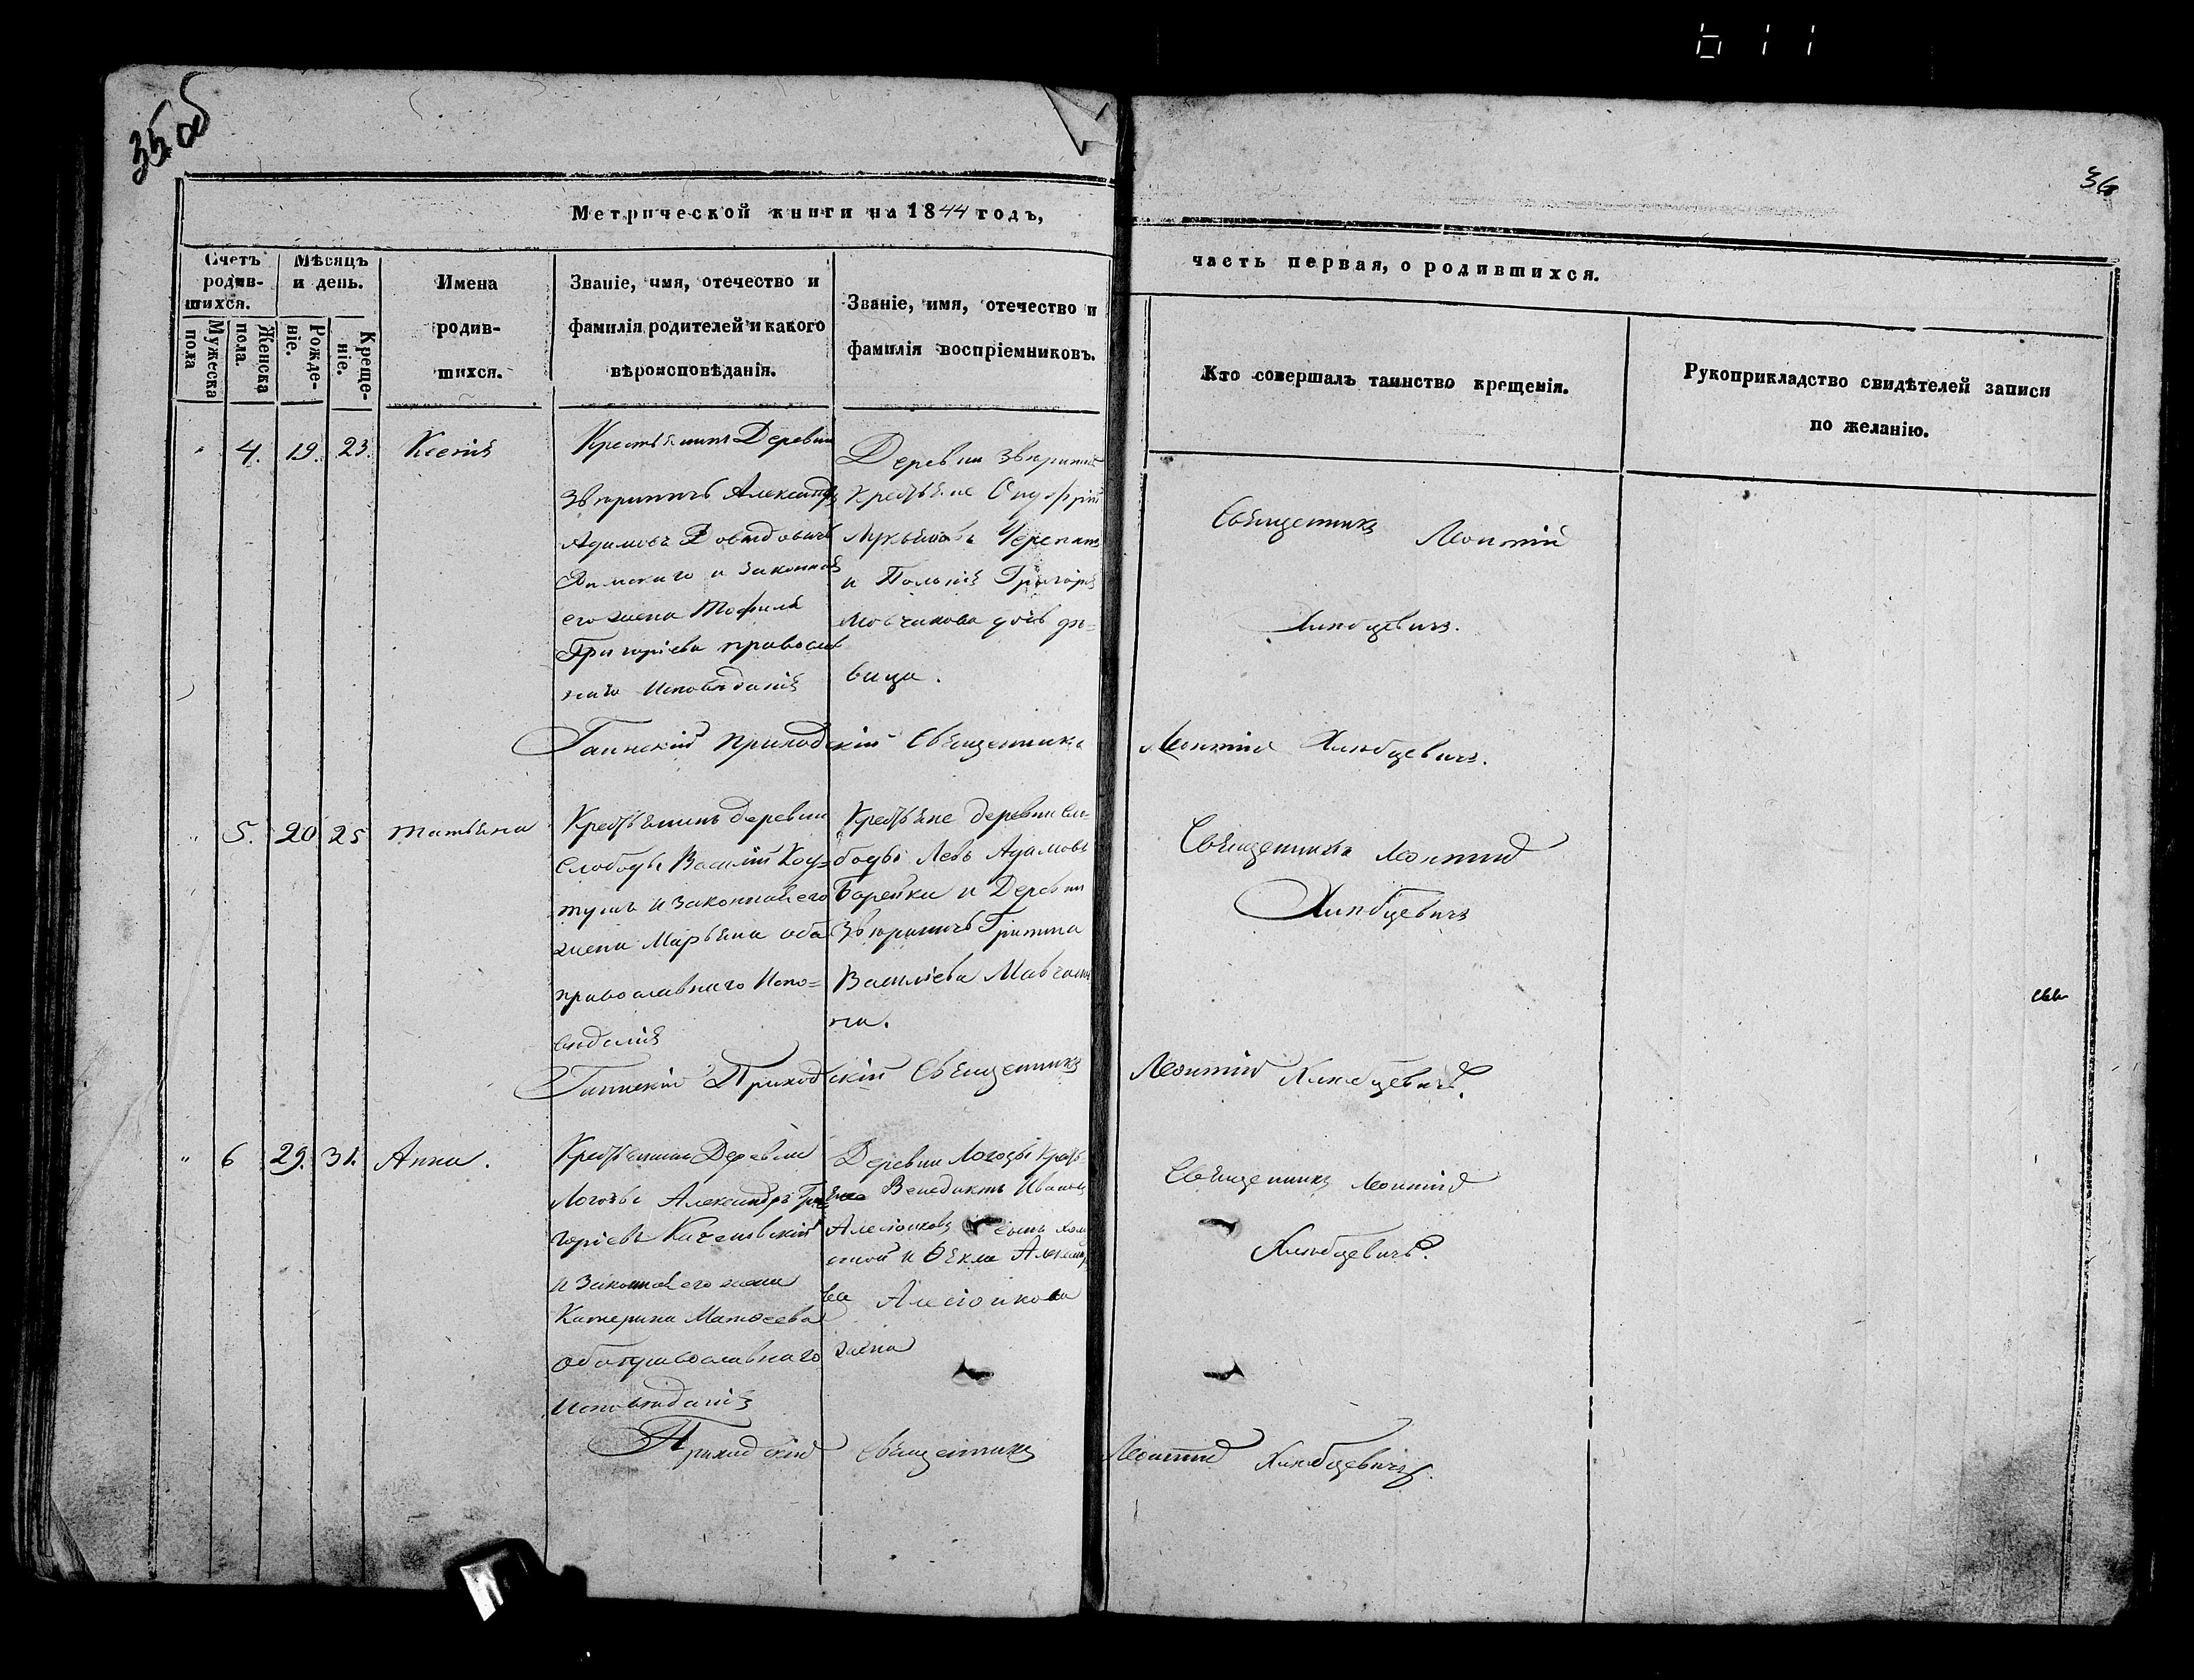 611
35 об
36
Метрической книги на 1844 годъ,
часть первая, о родившихся.
Счетъ родив-шихся.
Мѣсяцъ и день.
Мужеска пола
Женска пола.
Рожде-ніе.
Креще-ніе.
Имена
родив-
шихся.
Званіе, имя, отечество и
фамилія родителей и какого
вѣроисповѣданія.
Званіе, имя, отечество и
фамилія воспріемниковъ.
Кто совершалъ таинство крещенія.
Рукоприкладство свидѣтелей записи
по желанію.
" 4. 19. 23. Ксенія
Крестьянинъ Деревни
Александръ
Адамовъ
Римскаго и законная
его жена Теофиля
Григоріева православ
наго Исповѣданія
Деревни
крестьяне Онуфрій
Лукьяновъ
и Григорія
дочь дѣ-
вица.
Священникъ Леонтій
Хлюбцевичъ.
Гаинскій Приходскій Священникъ Леонтій Хлюбцевичъ.
" 5. 20 25 Татьяна
Крестьянинъ деревни
Слободы Василій
и законная его
жена Марьяна оба
православнаго Испо=
вѣданія
Крестьяне деревни Сло-
боды Левъ Адамовъ
и Деревни
Василіева
на.
Священникъ Леонтій
Хлюбцевичъ
Гаинскій Приходскій Священникъ Леонтій Хлюбцевичъ.
" 6 29. 31. Анна.
Крестьянинъ Деревни
Логозы Александръ Гри
горіевъ
и законная его жена
Катерина Матѳеева
оба православнаго
Исповѣданія
Деревни Логозы Кресть-
яне Венедиктъ Ивановъ
сынъ холо
стой и Ѳекла Александро
ва
жена
Священникъ Леонтій
Хлюбцевичъ.
Приходскій Священникъ Леонтій Хлюбцевичъ